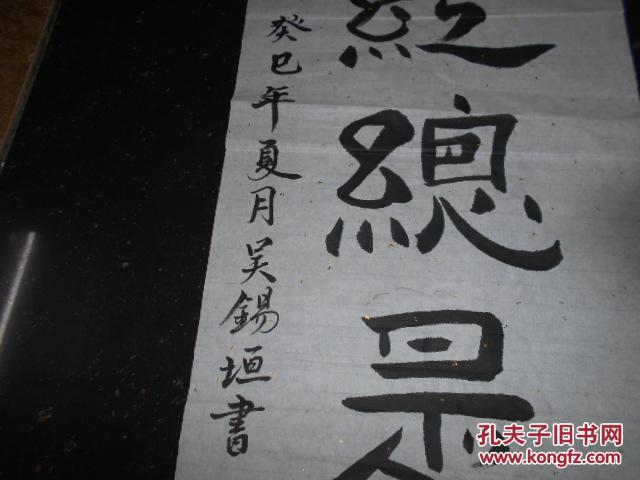 紅總是
癸巳年夏月吴錫垣書
孔夫子旧书网
www.kongfz.com